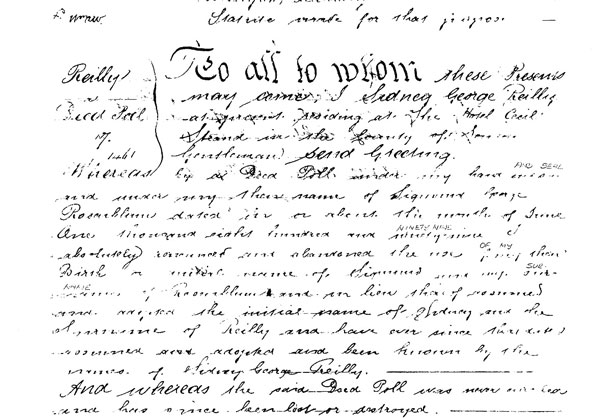 Statute made for that purpose —
Reilly
Deed Poll
To all to whom these Presents
may come, I Sidney George Reilly
at present residing at The Hotel Cecil
Strand in the County of
Gentleman Send Greeting.
Whereas by a Deed Poll under my hand AND SEAL
and under my then name of Sigmund George
Rosenblum dated in or about the month of June
One thousand eight hundred and NINETY NINE ninety-nine I
absolutely renounced and abandoned the use OF MY my then
Birth or initial name of Sigmund and my SUR-
NAME name of Rosenblum and in lieu thereof assumed
and adopted the initial name of Sidney and the
surname of Reilly and have ever since then
assumed and adopted and been known by the
names of Sidney George Reilly.
And whereas the said Deed Poll was never
and has since been lost or destroyed.